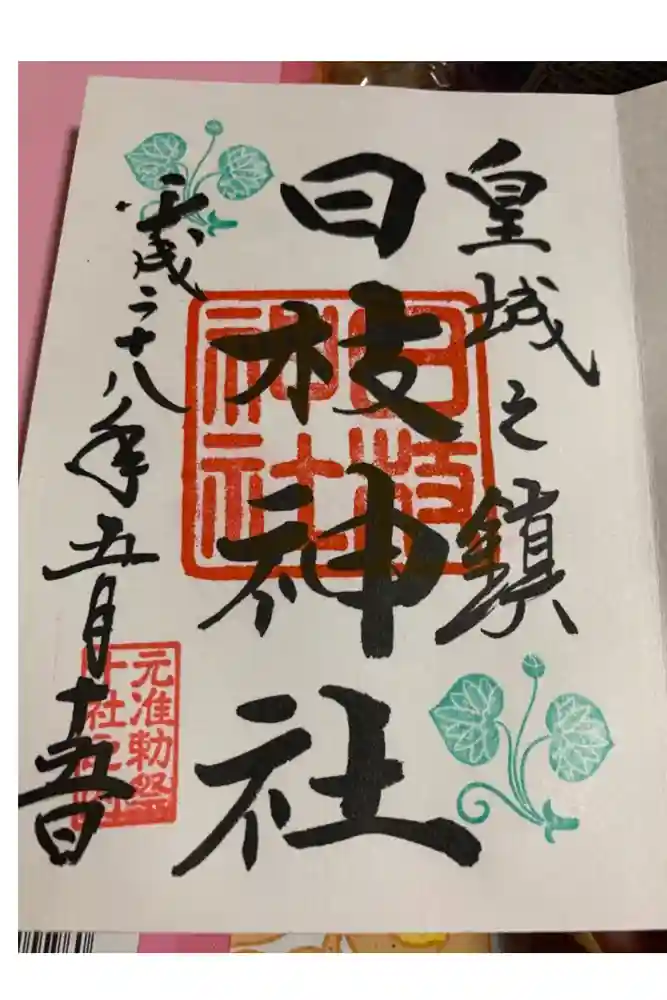 皇城之鎮
日枝神社
日枝
神社
平成二十八年五月十五日
元准勅祭
十社之内